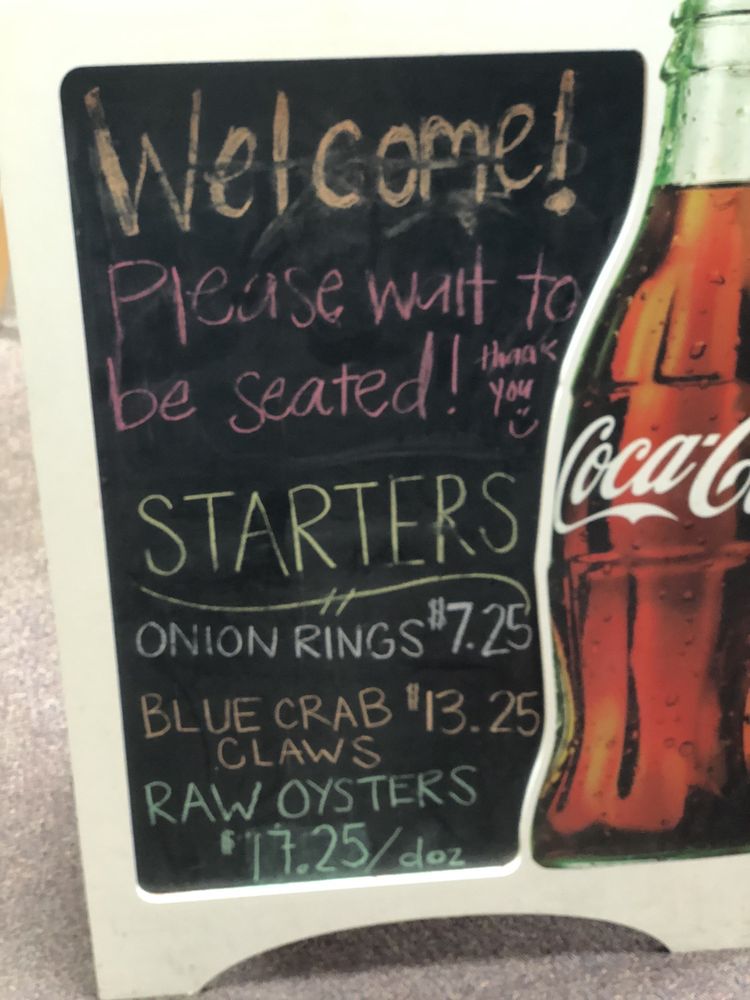 Welcome!
Please wait to
be seated! thank
you
STARTERS
ONION RINGS $7.25
BLUE CRAB $13.25
CLAWS
RAW OYSTERS
$17.25/doz
Coca-C